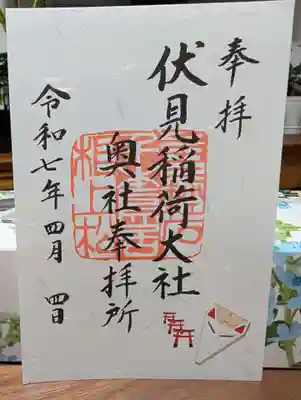 奉拝
伏見稲荷大社
奥社奉拝所
令和七年四月四日